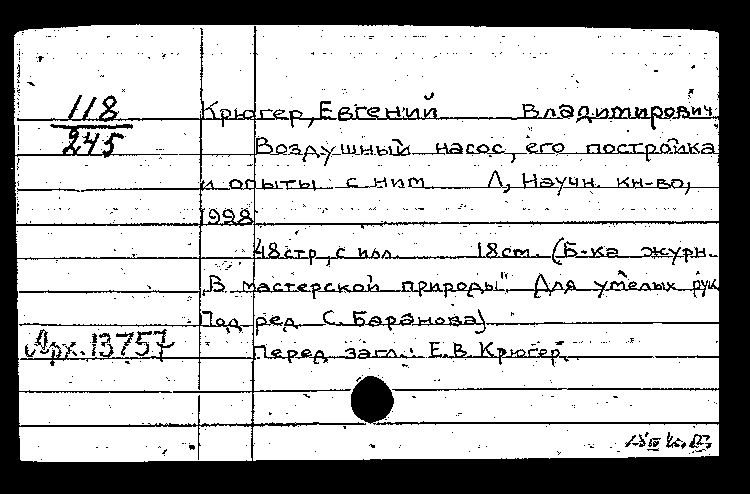 118
245
Крюгер, Евгений Владимирович
Воздушный насос, его постройка
и опыты с ним Л, Научн. кн-во,
1928
48стр, с илл. 18см. (Б-ка журн.
"В мастерской природы". Для умелых рук
Под ред. С. Баранова)
Арх. 13757
Перед загл.: Е.В. Крюгер.